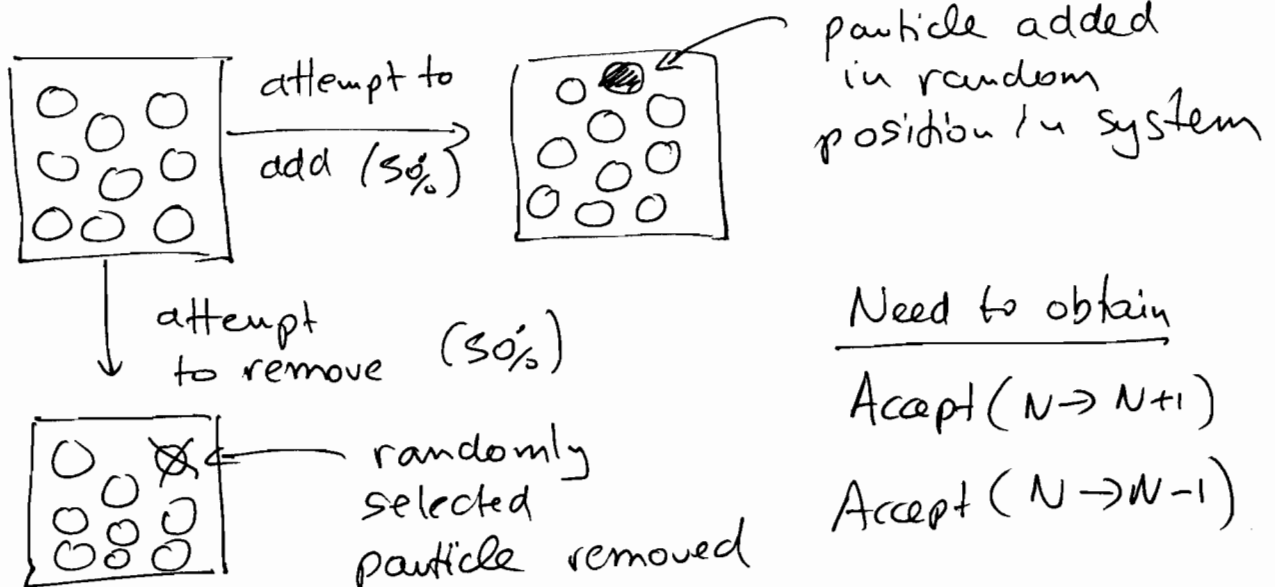 attempt to
add (50%)
particle added
in random
position in system
attempt
to remove (50%)
randomly
selected
particle removed
Need to obtain
Accept (N → N+1)
Accept (N → N-1)